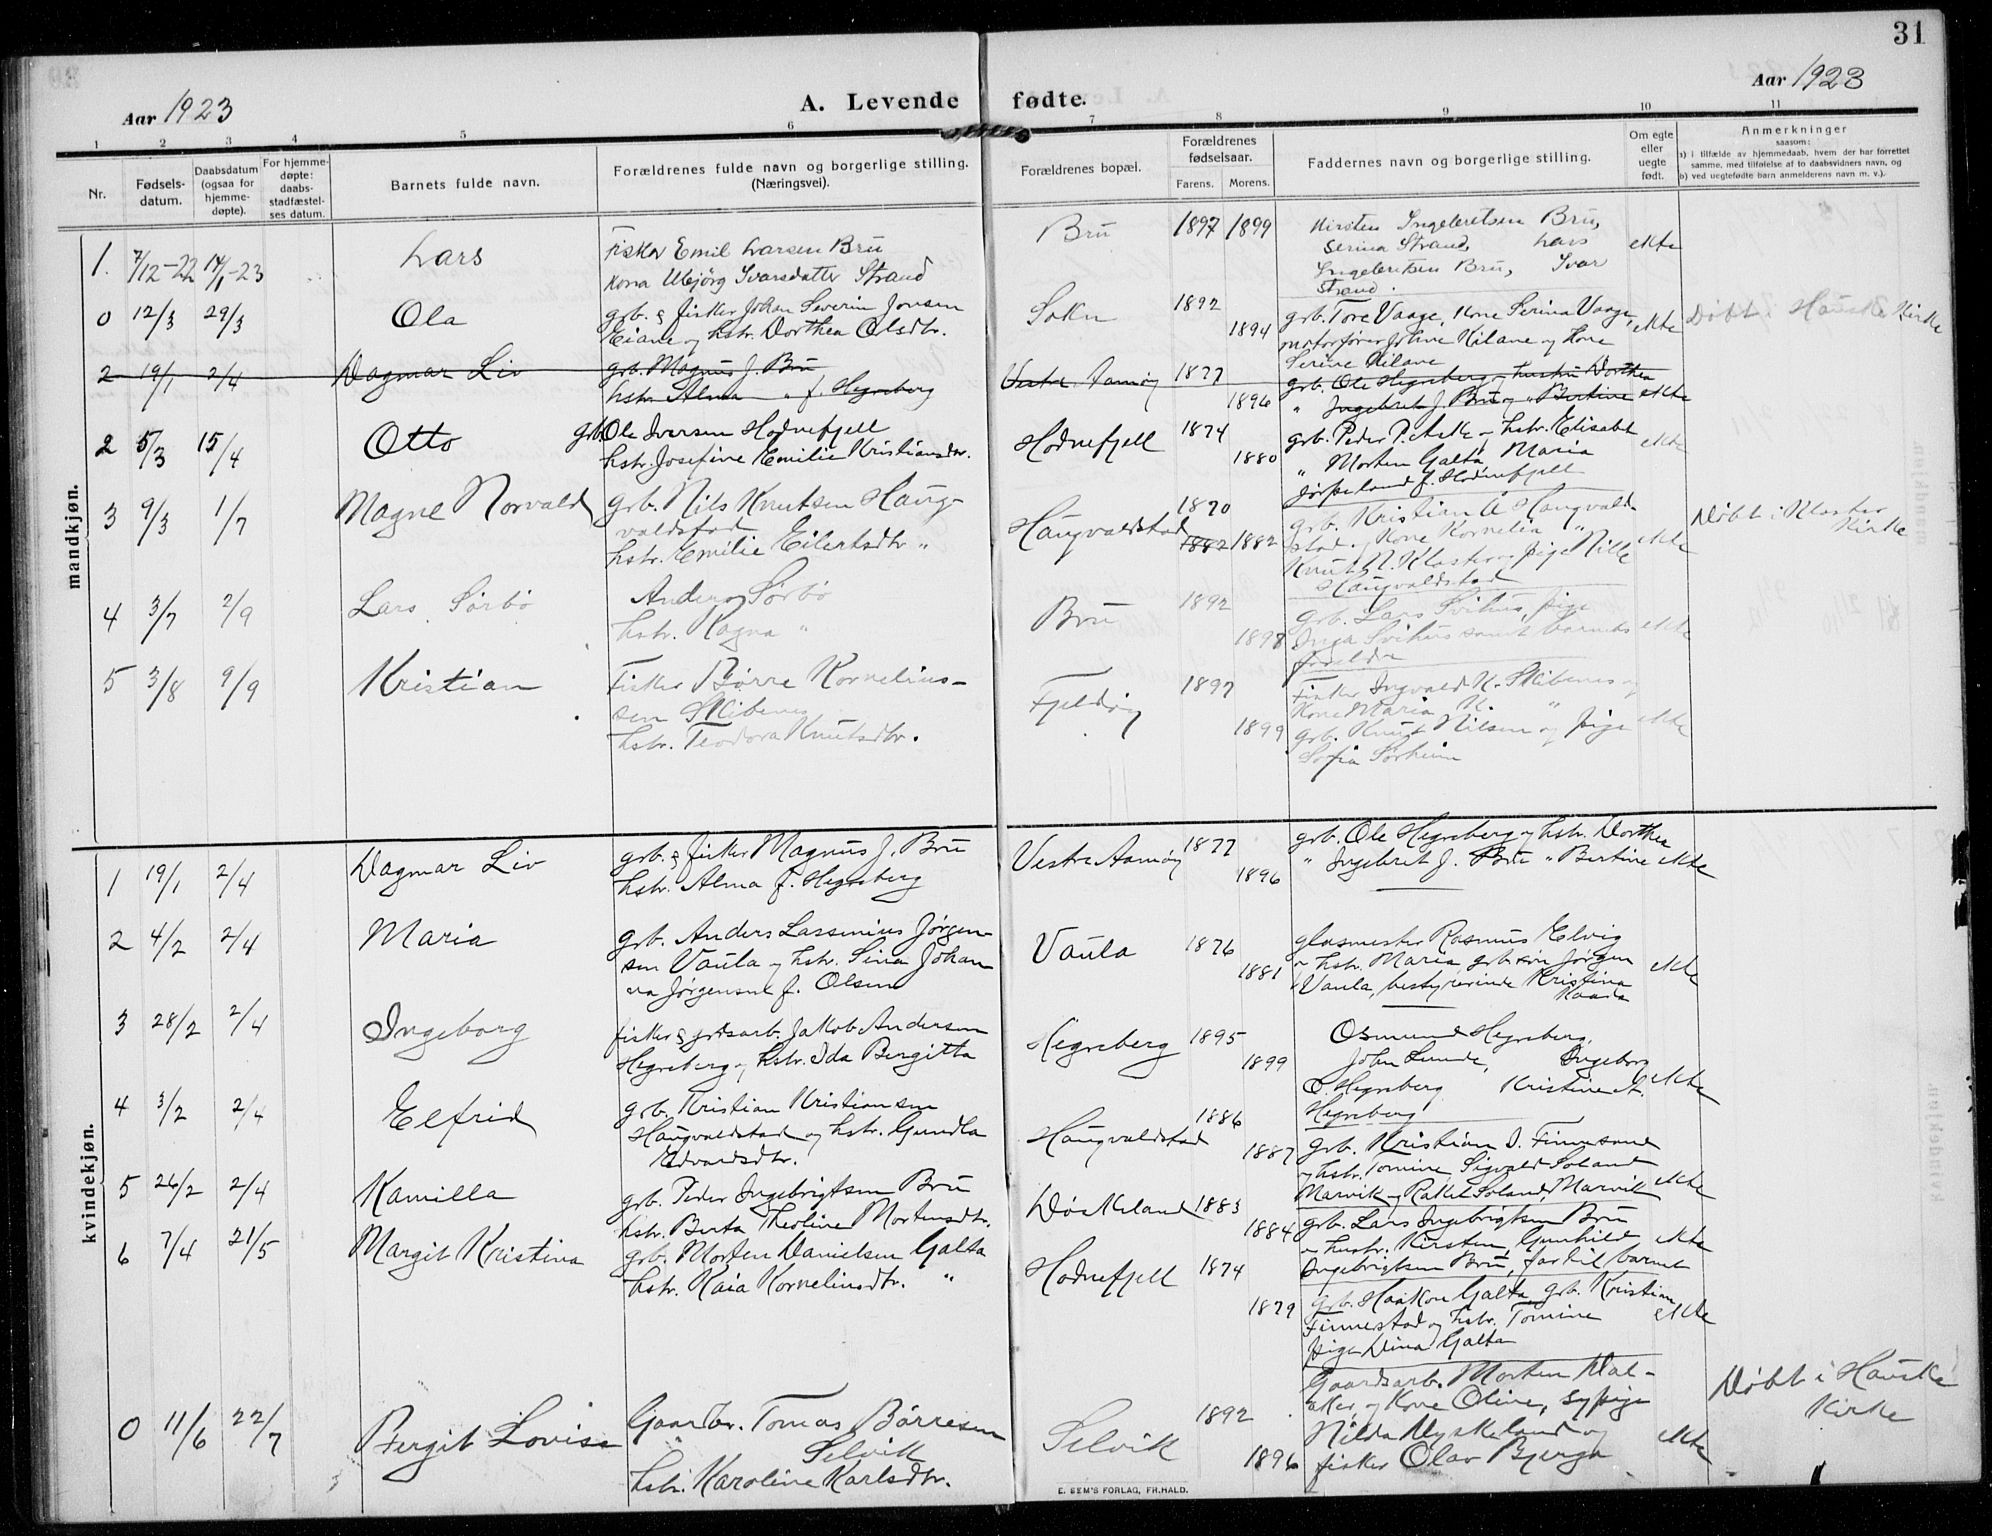 31
Aar 1923
A. Levende fødte.
Aar 1923
1 2 3 4 5 6 7 8 9 10 11
Nr.
Fødsels-
datum.
Daabsdatum
(ogsaa for
hjemme-
døpte).
For hjemme-
døpte:
daabs-
stadfæstel-
ses datum.
Barnets fulde navn.
Forældrenes fulde navn og borgerlige stilling.
(Næringsvei).
Forældrenes bopæl.
Forældrenes
fødselsaar.
Farens. Morens.
Faddernes navn og borgerlige stilling.
Om egte
eller
uegte
født.
Anmerkninger
saasom:
a) i tilfælde av hjemmedaab, hvem der har forrettet
samme, med tilføielse af to daabsvidners navn, og
b) ved uegtefødte barn anmelderens navn m. v.).
mandkjøn.
1. 7/12-22 14/1-23 Lars
Fisker Emil Larsen Bru
Kona Ubjørg Ivarsdatter Strand
Bru 1897 1899
Kirsten Ingebretsen Bru,
Serina Strand, Lars
Ingebretsen Bru, Ivar
Strand.
ekte
0 12/3 29/3 Ola
grb. & fisker Johan Severin Jonsen
Eiane og hstr. Dorthea Olsdtr.
Sokn 1892 1894
grb. Tore Vaage, Kone Serina Vaage,
motorfører Johne Kilane og Kone
Serine Kilane
ekte
Døbt i Hauske Kirke
2 19/1 2/4 Dagmar Liv
grb. Magnus J. Bru
hstr. Alma " f. Hegreberg
Vestre Aamøy 1877 1896
grb. Ole Hegreberg og hustru Dorthea
" Ingebret J. Bru og " Bertine
ekte
2 5/3 15/4 Otto
grb. Ole Iversen Hodnefjell
hstr. Josefine Emilie Kristiansdtr.
Hodnefjell 1874 1880
grb. Peder P. Aske og hstr. Elisabet
" Morten Galta, Maria
Jørpeland f. Hodnefjell
ekte
3 9/3 1/7 Magne Norvald
grb. Nils Knutsen Haug-
valdstad
hstr. Emilie Eilertsdtr "
Haugvaldstad 1870 1882 1882
grb. Kristian A Haugvald
stad og Kone Kornelia "
Knut N. Kloster og pige Nille
Haugvaldstad
ekte
Døbt i Kloster
Kirke
4 3/7 2/9 Lars Sørbø
Anders Sørbø
hstr. Ragna "
Bru 1892 1898
grb. Lars Svihus, pige
Inga Svihus samt barnets
foreldre
ekte
5 3/8 9/9 Kristian
Fisker Børre Kornelius-
sen Skibenes
hstr. Teodora Knutsdtr.
Fjeldøy 1897 1899
Fisker Ingvald K. Skibenes og
Kone Maria K. "
grb. Knut Nilsen og pige
Sofia Sørheim
ekte
kvindekjøn.
1 19/1 2/4 Dagmar Liv
grb. & fisker Magnus J. Bru
hstr. Alma f. Hegreberg
Vestre Aamøy 1877 1896
grb. Ole Hegreberg og hstr. Dorthea
" Ingebret J. Bru " Bertine
ekte
2 4/2 2/4 Maria
grb. Anders Lassenius Jørgen-
sen Vaula og hstr. Sina Johan
na Jørgensen f. Olsen
Vaula 1876 1881
glasmester Rasmus Elvig
og hstr. Maria grb. søn Jørgen
Vaula, bestyrerinde Kristina
Kaada
ekte
3 28/2 2/4 Ingeborg
fisker & grdsarb. Jakob Andersen
Hegreberg og hstr. Ida Bergitta
Hegreberg 1895 1899
Osmund Hegreberg,
John Lunde, Ingeborg
O. Hegreberg Kristine A.
Hegreberg
ekte
4 3/2 2/4 Elfrid
grb. Kristian Kristiansen
Haugvaldstad og hstr. Gundla
Edvardsdtr.
Haugvaldstad 1886 1887
grb. Kristian I. Finnesand
og hstr. Tomine Sigvald Soland
Marvik og Rakel Soland, Marvik
ekte
5 26/2 2/4 Kamilla
grb. Peder Ingebrigtsen Bru
hstr. Berta Theoline Mortensdtr.
Døskeland 1883 1884
grb. Lars Ingebrigtsen Bru
og hustr. Kirsten, Gunhild
Ingebrigtsen Bru, far til barnet
ekte
6 7/4 21/5 Margit Kristina
grb. Morten Danielsen Galta
hstr. Kaia Kornelinsdtr. "
Hodnefjell 1874 1879
grb. Haakon Galta grb. Kristian
Finnestad og hstr. Tomine
pige Dina Galta
ekte
0 11/6 22/7 Bergit Lovise
Gaardbr. Tomas Børresen
Selvik
hstr. Karoline Karlsdtr.
Selvik 1892 1896
Gaardsarb. Morten Dal-
aker og Kone Oline, sypige
Hilda Myskeland og
fisker Olav Bjerga
ekte
Døbt i Hauske
Kirke
E. SEM'S FORLAG, FR.HALD.